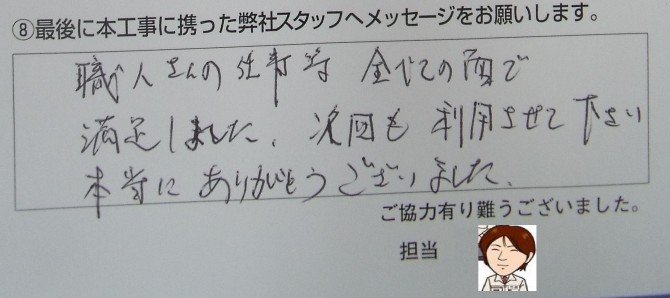 ⑧最後に本工事に携った弊社スタッフへメッセージをお願いします。
職人さんの仕事等 全べての面で
満足しました、次回も利用させて下さい
本当にありがとうございました、
ご協力有り難うございました。
担当